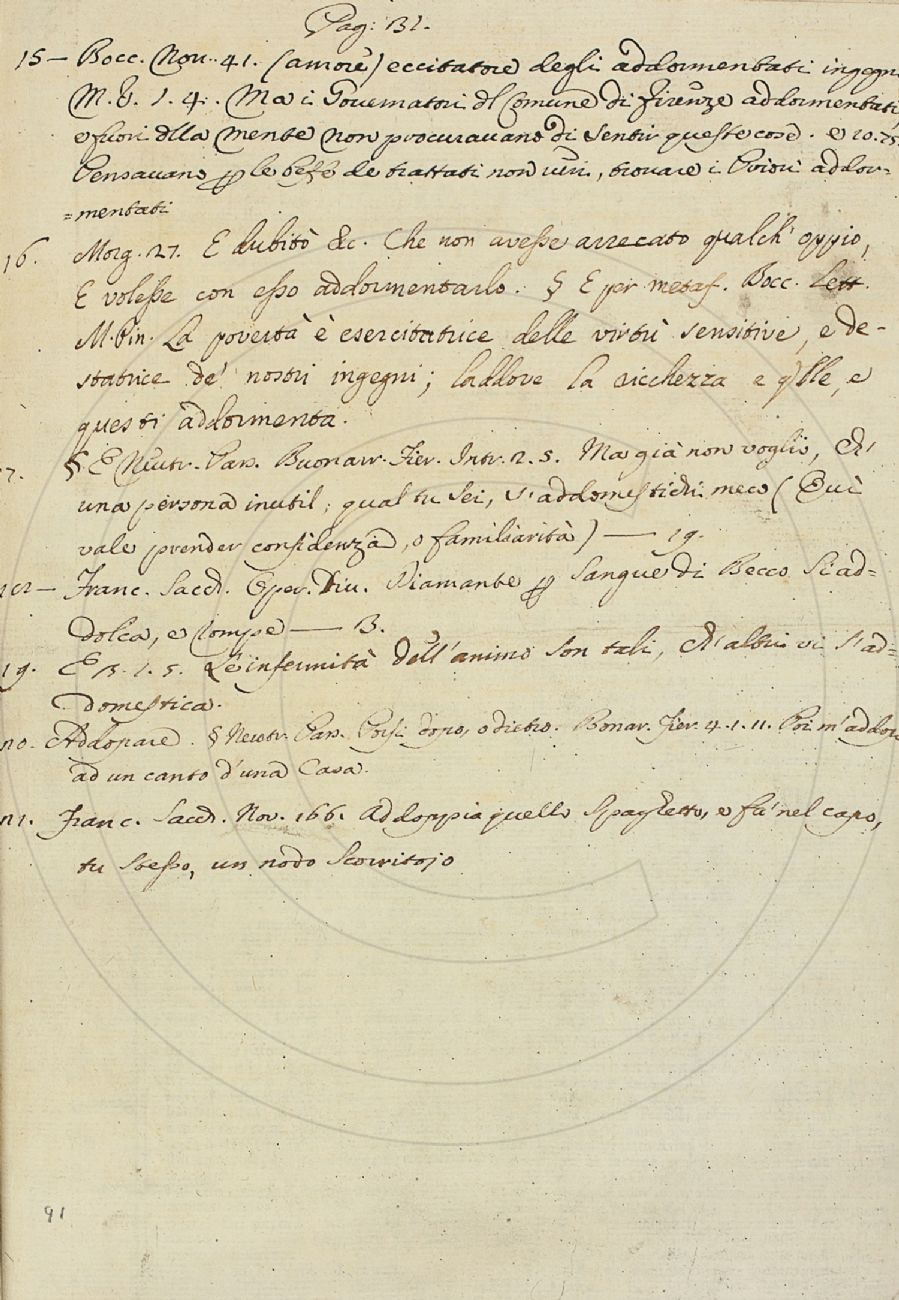 Pag: 31.
15 – Bocc. Nov. 41. (amore) eccitatore degli addormentati ingegni
M.V. 1.4. Ma i Governatori dl Comune di Firenze addormentati,
e fuori dlla mente non procuravano di sentir queste cose. e 10.25.
Pensavano p le beffe de trattati non veri, trovare i Priori addor=
=mentati
16. Morg. 27. E dubitò &c. Che non avesse arrecato qualch' oppio,
E volesse con esso addormentarlo. § E per metaf. Bocc. Lett.
M. Pin. La povertà è esercitatrice delle virtù sensitive, e de-
statrice de' nostri ingegni; laddove la ricchezza e qlle, e
questi addormenta.
7. § E Neutr. Pass. Buonarr. Fier. Intr. 2. 5. Ma già non voglio, Ch'
una persona inutil, qual tu sei, s'addomestichi meco (Qui
vale prender confidenza, o familiarità) — 19.
Franc. Sacch. Oper. Div. Diamante p sangue di Becco si ad=
dolca, e rompe — 13.
19. E 13. 1. 5. Le infermità dell'animo son tali, ch'altri vi s'ad=
domestica.
20. Addopare. § Neutr. Pass. Porsi dopo, o dietro. Bonar. Fier. 4. 1. 11. Poi m'addopo
ad un canto d'una Casa.
21. Franc. Sacch. Nov. 166. Addoppia quello Spaghetto, e fa' nel capo,
tu stesso, un nodo Scorritojo
91